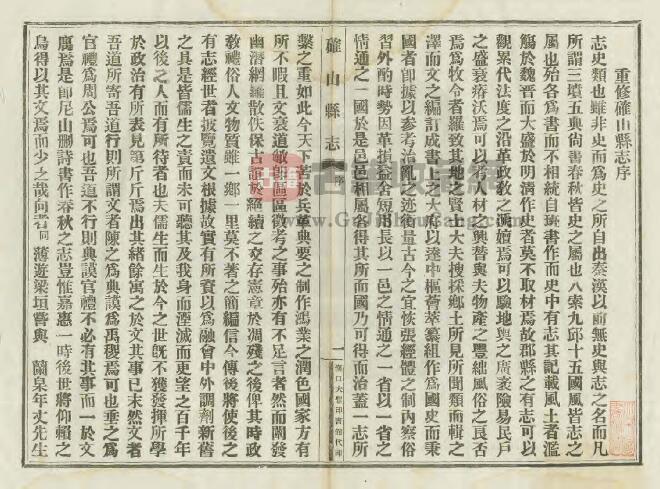 重修確山縣志序
志史類也雖非史而爲史之所自出秦漢以前無史與志之名而凡
所謂三墳五典尙書春秋皆史之屬也八索九邱十五國風皆志之
屬也殆各爲書而不相統自班書作而史中有志其記載風土者濫
觴於魏晋而大盛於明淸作史者莫不取材焉故郡縣之有志可以
觀累代法度之沿革政教之演嬗焉可以騐地輿之廣袤險易民戶
之盛衰瘠沃焉可以考人材之興替與夫物產之豐絀風俗之良否
焉爲牧令者羅致其地之賢士大夫搜採鄉土所見所聞類而輯之
澤而文之編訂成書上之大府以達中樞薈萃纂組作爲國史而秉
國者卽據以參考治亂之迹衡量古今之宜恢張經體之制內察俗
習外酌時勢因革損益舍短用長以一邑之情通之一省以一省之
情通之一國於是邑邑相屬各得其所而國乃可得而治蓋一志所
確山縣志
序
一
漢口大聖印書館代印
繫之重如此今天下
著於兵革典要之制作鴻業之潤色國家方有
所不暇且文衰道敝即區區徵考之事殆亦有不足言者然而闡發
幽潛網編散佚保古訓於絕續之交存憲章於凋殘之後俾其時政
敎禮俗人文物質雖一鄉一里莫不著之簡編信今傳後將使後之
有志經世者披覽遺文根據故實有所資以爲融會中外調劑新舊
之具是皆儒生之責而未可聽其及我身而湮滅而更望之百千年
以後之人而有所待者也夫儒生而生於今之世旣不獲發揮所學
於政治有所表見第斤斤焉出其緖餘寓之於文其事已末然文者
吾道所寄吾道行則所謂文者陳之爲典謨爲禹稷焉可也垂之爲
官禮爲周公焉可也吾道不行則典謨官禮不必有其事而一於文
寓焉是卽尼山刪詩書作春秋之志豈惟嘉惠一時後世將仰賴之
烏得以其文焉而少之哉向者同薄遊梁垣嘗與蘭泉年丈先生